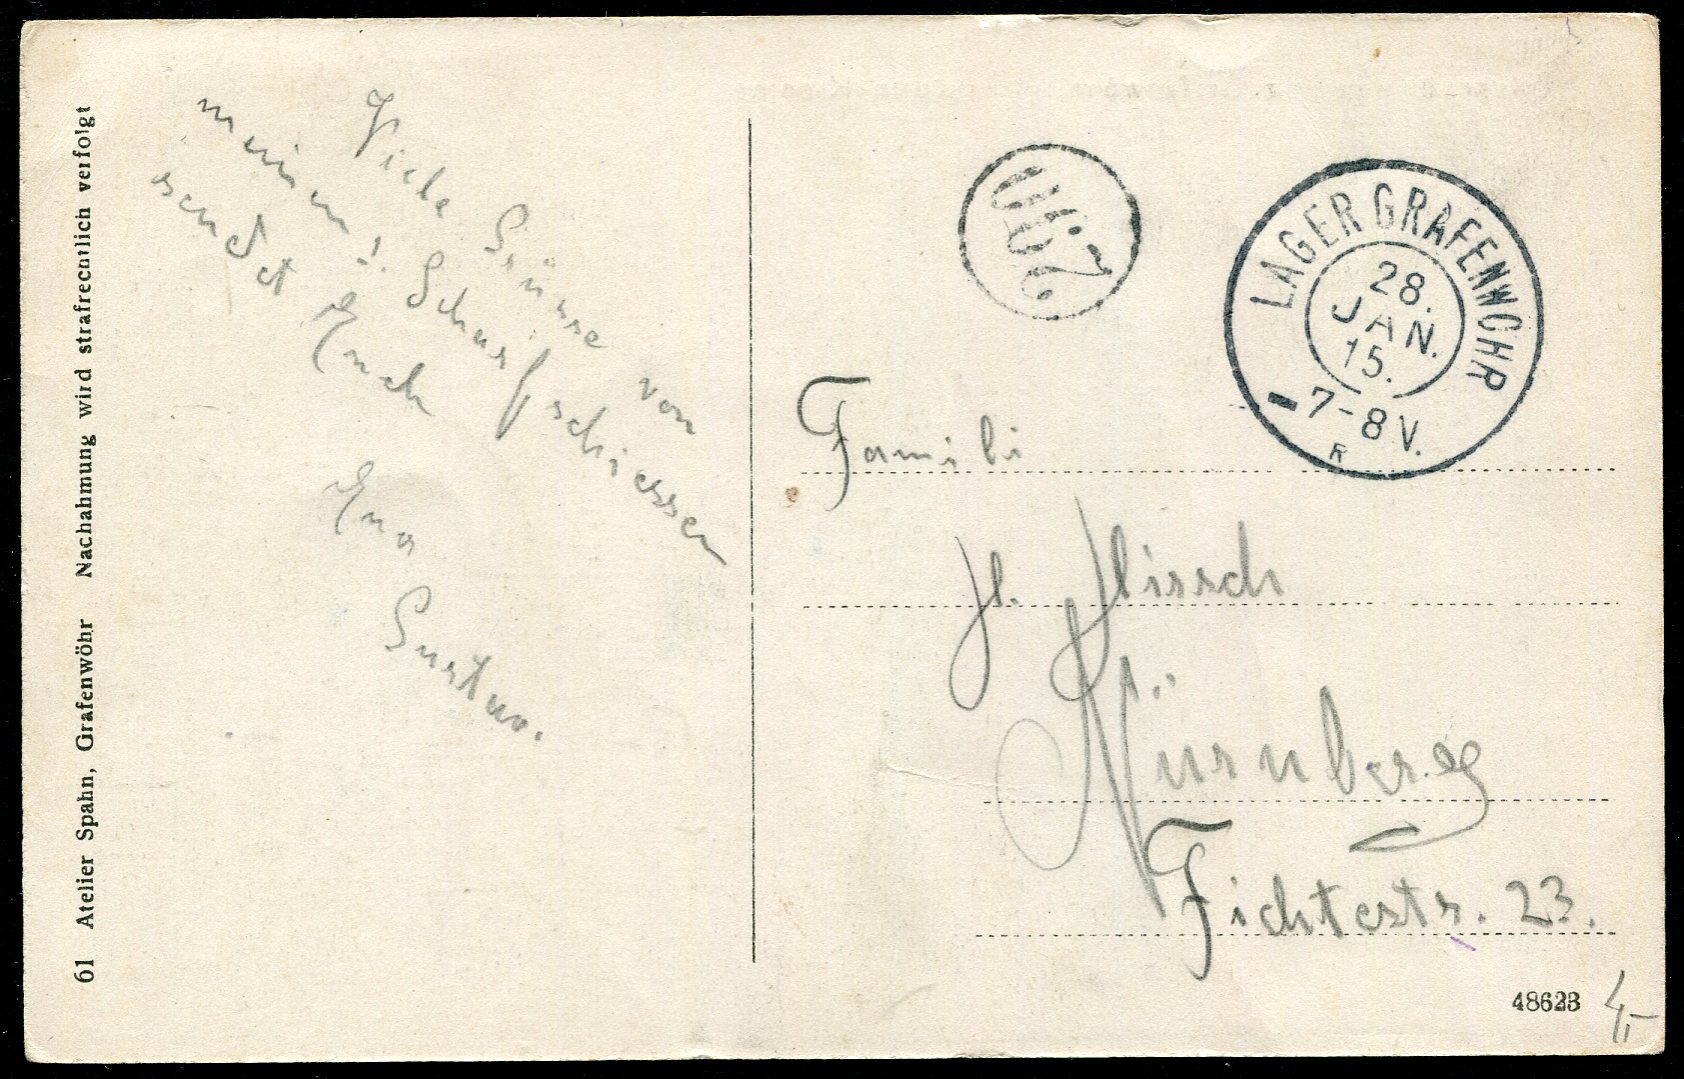 61 Atelier Spahn, Grafenwöhr Nachahmung wird strafrechtlich verfolgt
Viele Grüsse von
meinem 1. Scharfschiessen
sendet Euch
Euer
Gustav.
LAGER GRAFENWÖHR
28.
JAN.
15.
7-8 V.
Famili
Hirsch
Nürnberg
Fichtestr. 23.
4,-